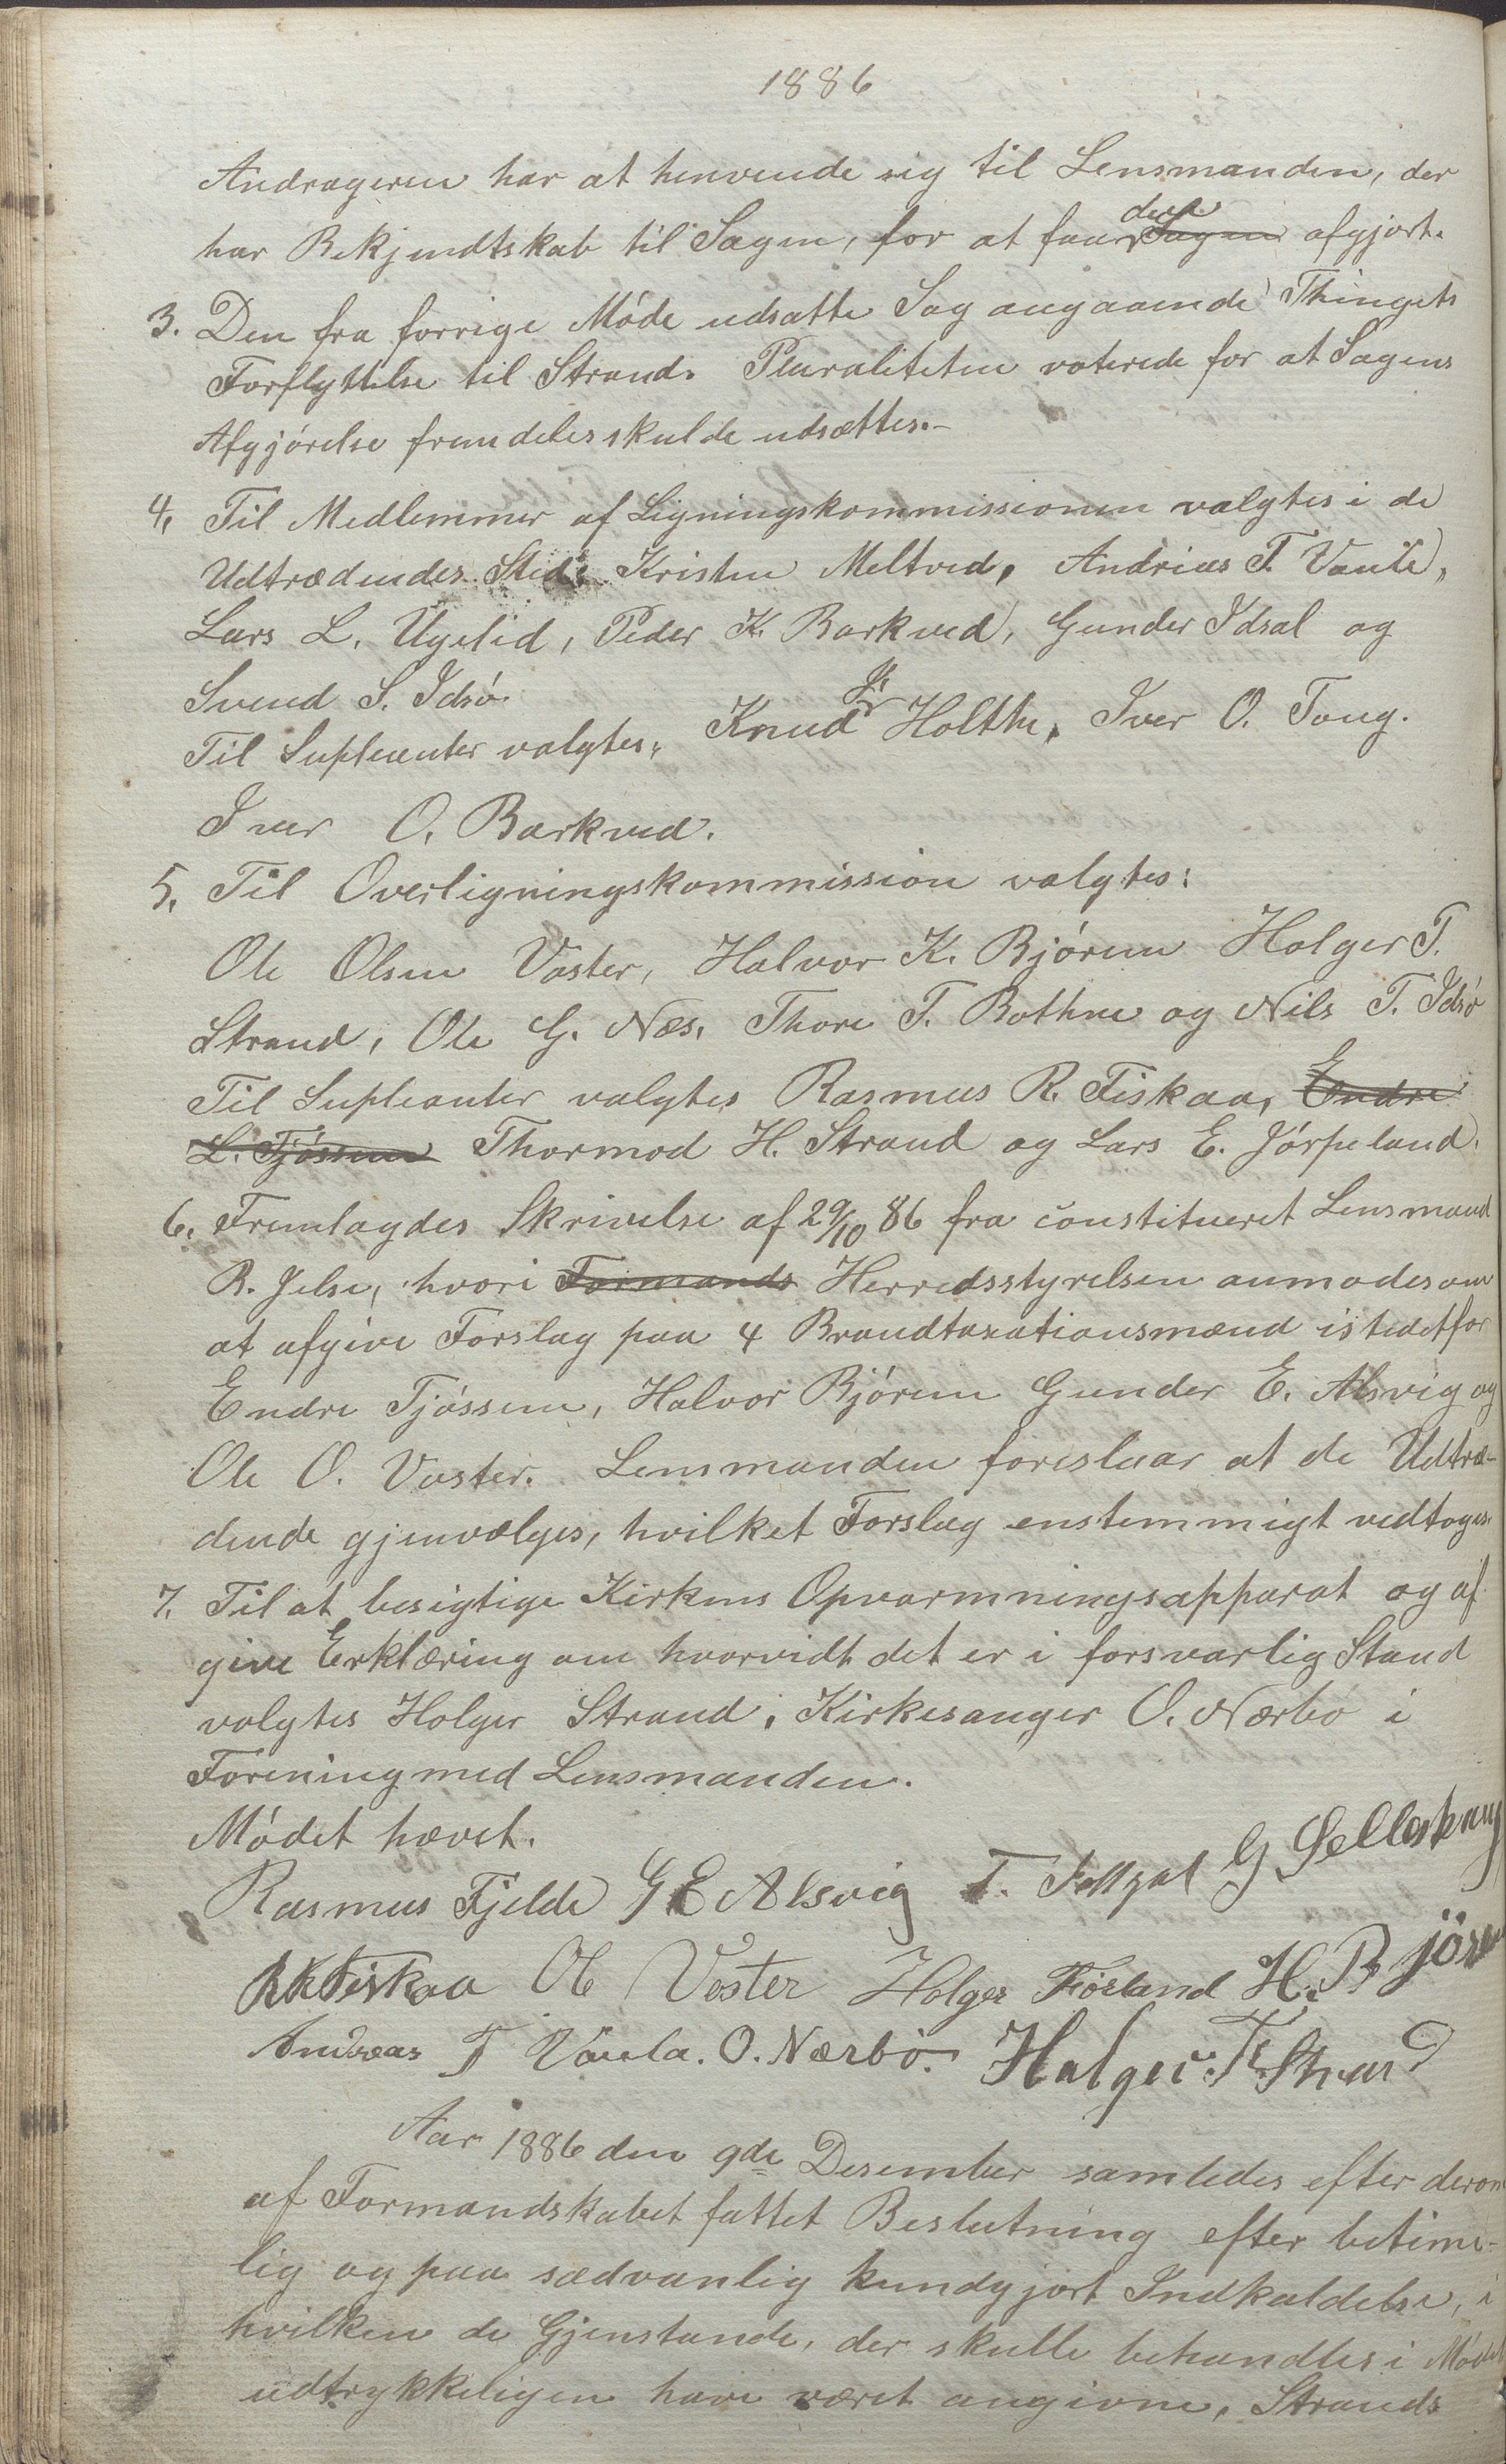 1886
Andrageren har at henvende sig til Lensmanden, der
har Bekjendtskab til Sagen, for at faa den Sagen afgjort.
3. Den fra forrige Møde udsatte Sag angaaende Thingets
Forflyttelse til Strand. Pluraliteten voterede for at Sagens
Afgjørelse fremdeles skulde udsættes.-
4. Til Medlemmer af Ligningskommissionen valgtes i de
Udtrædendes Sted: Kristen Meltved, Andreas T. Vaule,
Lars L. Ugelid, Peder K. Barkved, Gunder Idsal og
Svend S. Idsø.
Til Supleanter valgtes: Knud Holthe, Iver O. Tong.
Iver O. Barkved.
5. Til Overligningskommission valgtes:
Ole Olsen Vaster, Halvor K. Bjøren Holger T.
Strand, Ole G. Næs, Thore T. Bothne og Nils T. Idsø
Til Supleanter valgtes Rasmus R. Fiskaa, Endre
L. Tjøssem Thormod H. Strand og Lars E. Jørpeland.
6. Fremlagdes Skrivelse af 29/10 86 fra constitueret Lensmand
R. Jelse, hvori Formands Herredsstyrelsen anmodes om
at afgive Forslag paa 4 Brandtaxationsmænd istedetfor
Endre Tjøssem, Halvor Bjøren Gunder E. Alsvig og
Ole O. Vaster. Lensmanden foreslaar at de Udtræ-
dende gjenvælges, hvilket Forslag enstemmigt vedtoges.
7. Til at besigtige Kirkens Opvarmningsapparat og af
give Erklæring om hvorvidt det er i forsvarlig Stand
valgtes Holger Strand, Kirkesanger O. Nærbø i
Forening med Lensmanden.
Mødet hævet.
Rasmus Fjelde G E Alsvig T. G
R R Fiskaa Ole Vaster Holger Førland H. Bjøren
Andreas T Vaula. O. Nærbø. Holger T. Strand
Aar 1886 den 9de Desember samledes efter derom
af Formandskabet fattet Beslutning efter betime-
lig og paa sædvanlig kundgjort Indkaldelse, i
hvilken de Gjenstande, der skulle behandles i Mødet
udtrykkeligen have været angivne, Strands